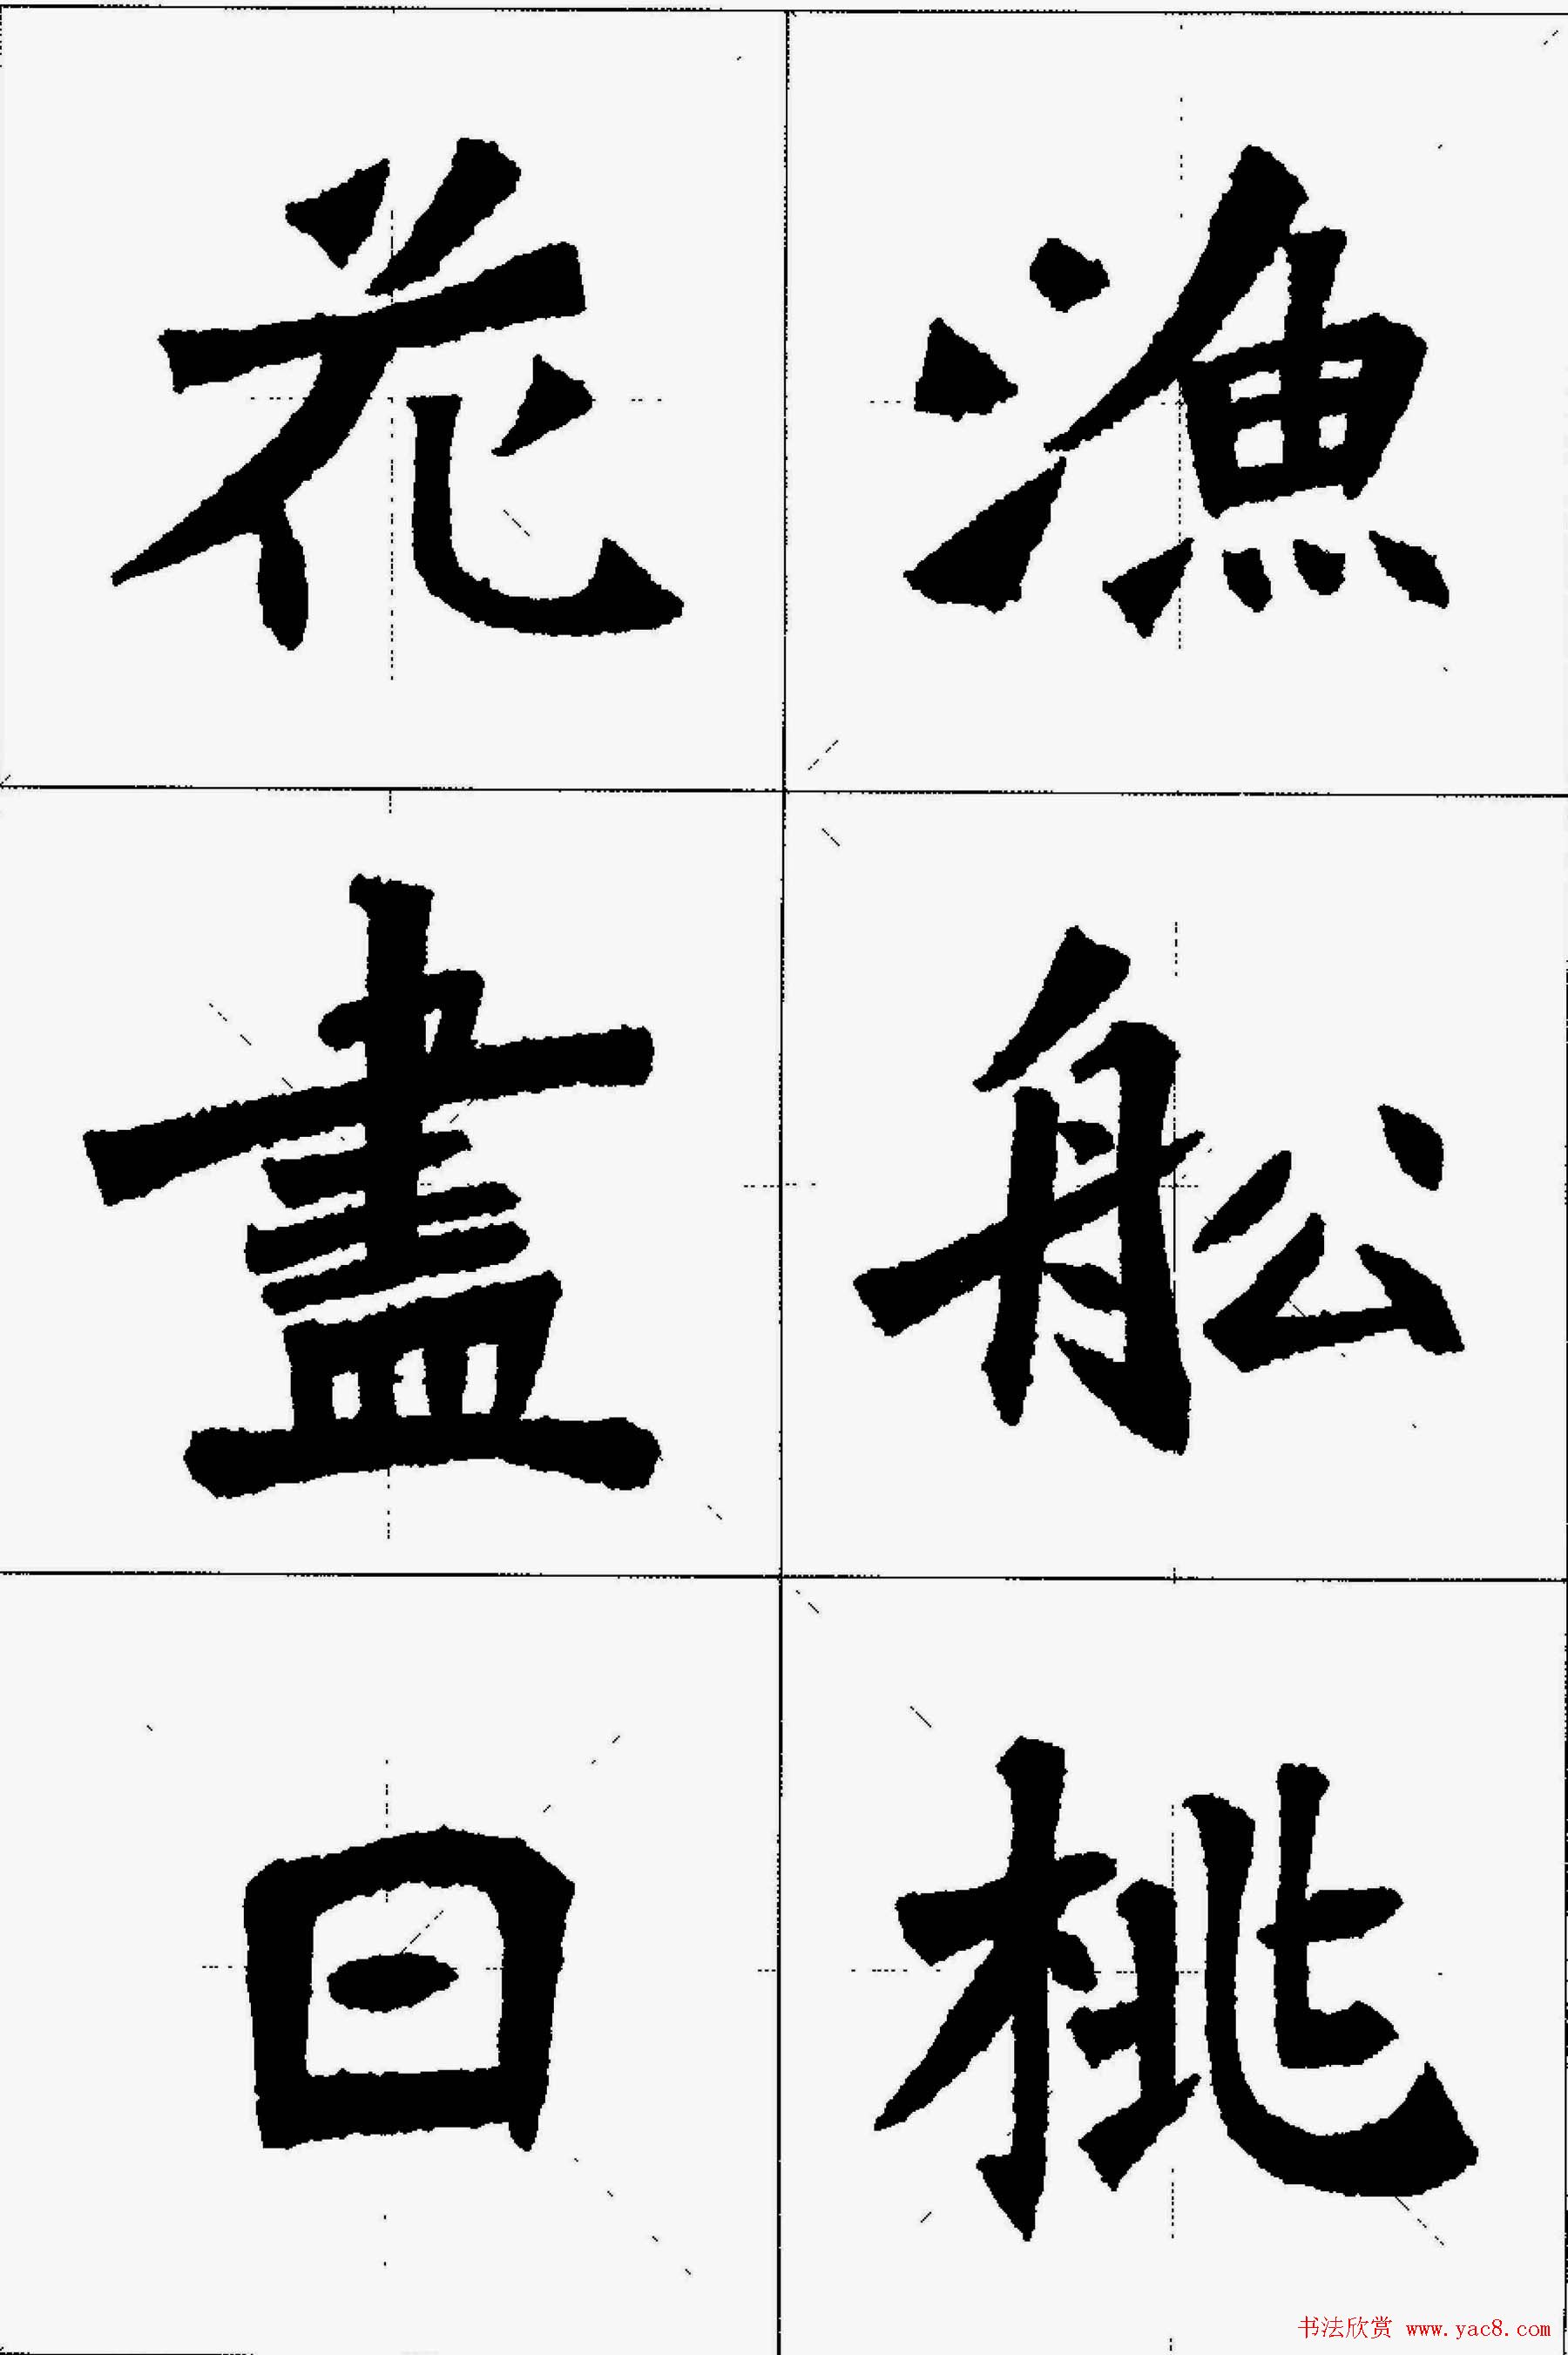 漁舩桃
花盡日
书法欣赏 www.yac8.com